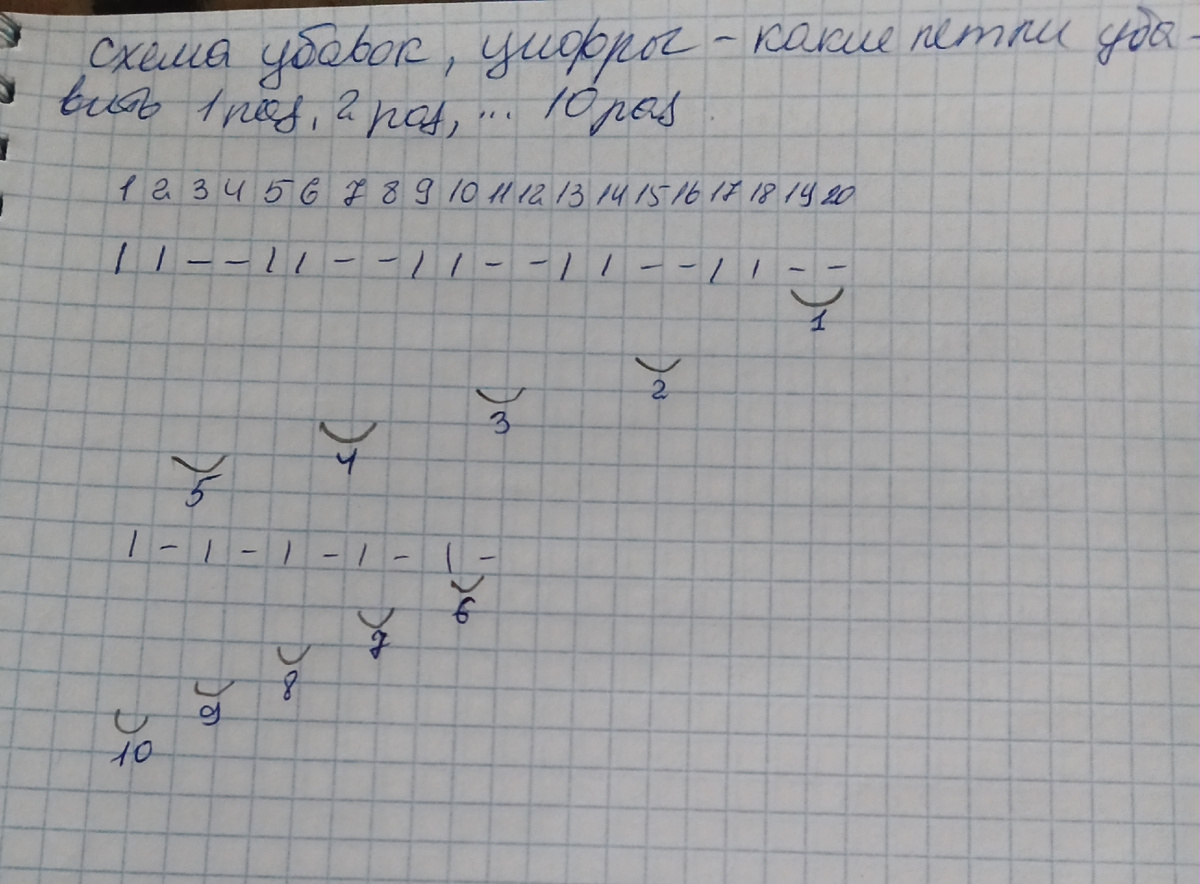 схема убавок, цифры - какие петли уба-
вить 1 раз, 2 раз, ... 10 раз.
1 2 3 4 5 6 7 8 9 10 11 12 13 14 15 16 17 18 19 20
| | - - | | - - | | - - | | - - | | - -
1
2
3
4
5
| - | - | - | - | -
6
7
8
9
10